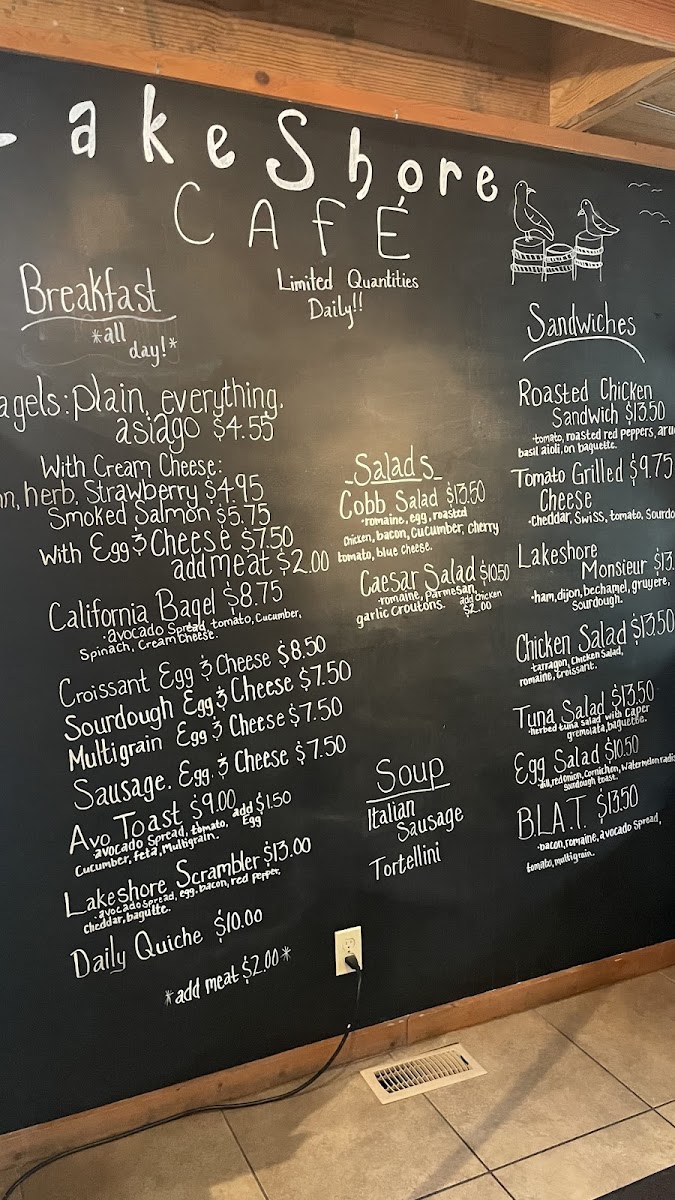 LakeShore
CAFÉ
Limited Quantities
Daily!!
Breakfast
*all
day!*
agels: plain, everything,
asiago $4.55
With Cream Cheese:
n, herb, Strawberry $4.95
Smoked Salmon $5.75
With Egg & Cheese $7.50
add meat $2.00
California Bagel $8.75
·avocado Spread, tomato, Cucumber,
Spinach, Cream Cheese.
Croissant Egg & Cheese $8.50
Sourdough Egg & Cheese $7.50
Multigrain Egg & Cheese $7.50
Sausage, Egg, & Cheese $7.50
Avo Toast $9.00 add $1.50
Egg
·avocado Spread, tomato,
Cucumber, feta, Multigrain.
Lakeshore Scrambler $13.00
·avocado Spread, egg, bacon, red pepper,
cheddar, bagutte.
Daily Quiche $10.00
*add meat $2.00*
Salads
Cobb Salad $13.50
·romaine, egg, roasted
chicken, bacon, cucumber, cherry
tomato, blue cheese.
Caesar Salad $10.50
·romaine, parmesan,
garlic croutons. add chicken
$2.00
Soup
Italian
Sausage
Tortellini
Sandwiches
Roasted Chicken
Sandwich $13.50
·tomato, roasted red peppers, aru
basil aioli, on baguette.
Tomato Grilled $9.75
Cheese
·cheddar, Swiss, tomato, Sourdo
Lakeshore
Monsieur $13.
·ham, dijon, bechamel, gruyere,
Sourdough.
Chicken Salad $13.50
tarragon, Chicken Salad,
romaine, Croissant.
Tuna Salad $13.50
·herbed tuna salad with Caper
gremolata, baguette.
Egg Salad $10.50
·dill, red onion, Cornichon, Watermelon radis
Sourdough toast.
B.L.A.T. $13.50
·bacon, romaine, avocado Spread,
tomato, multigrain.